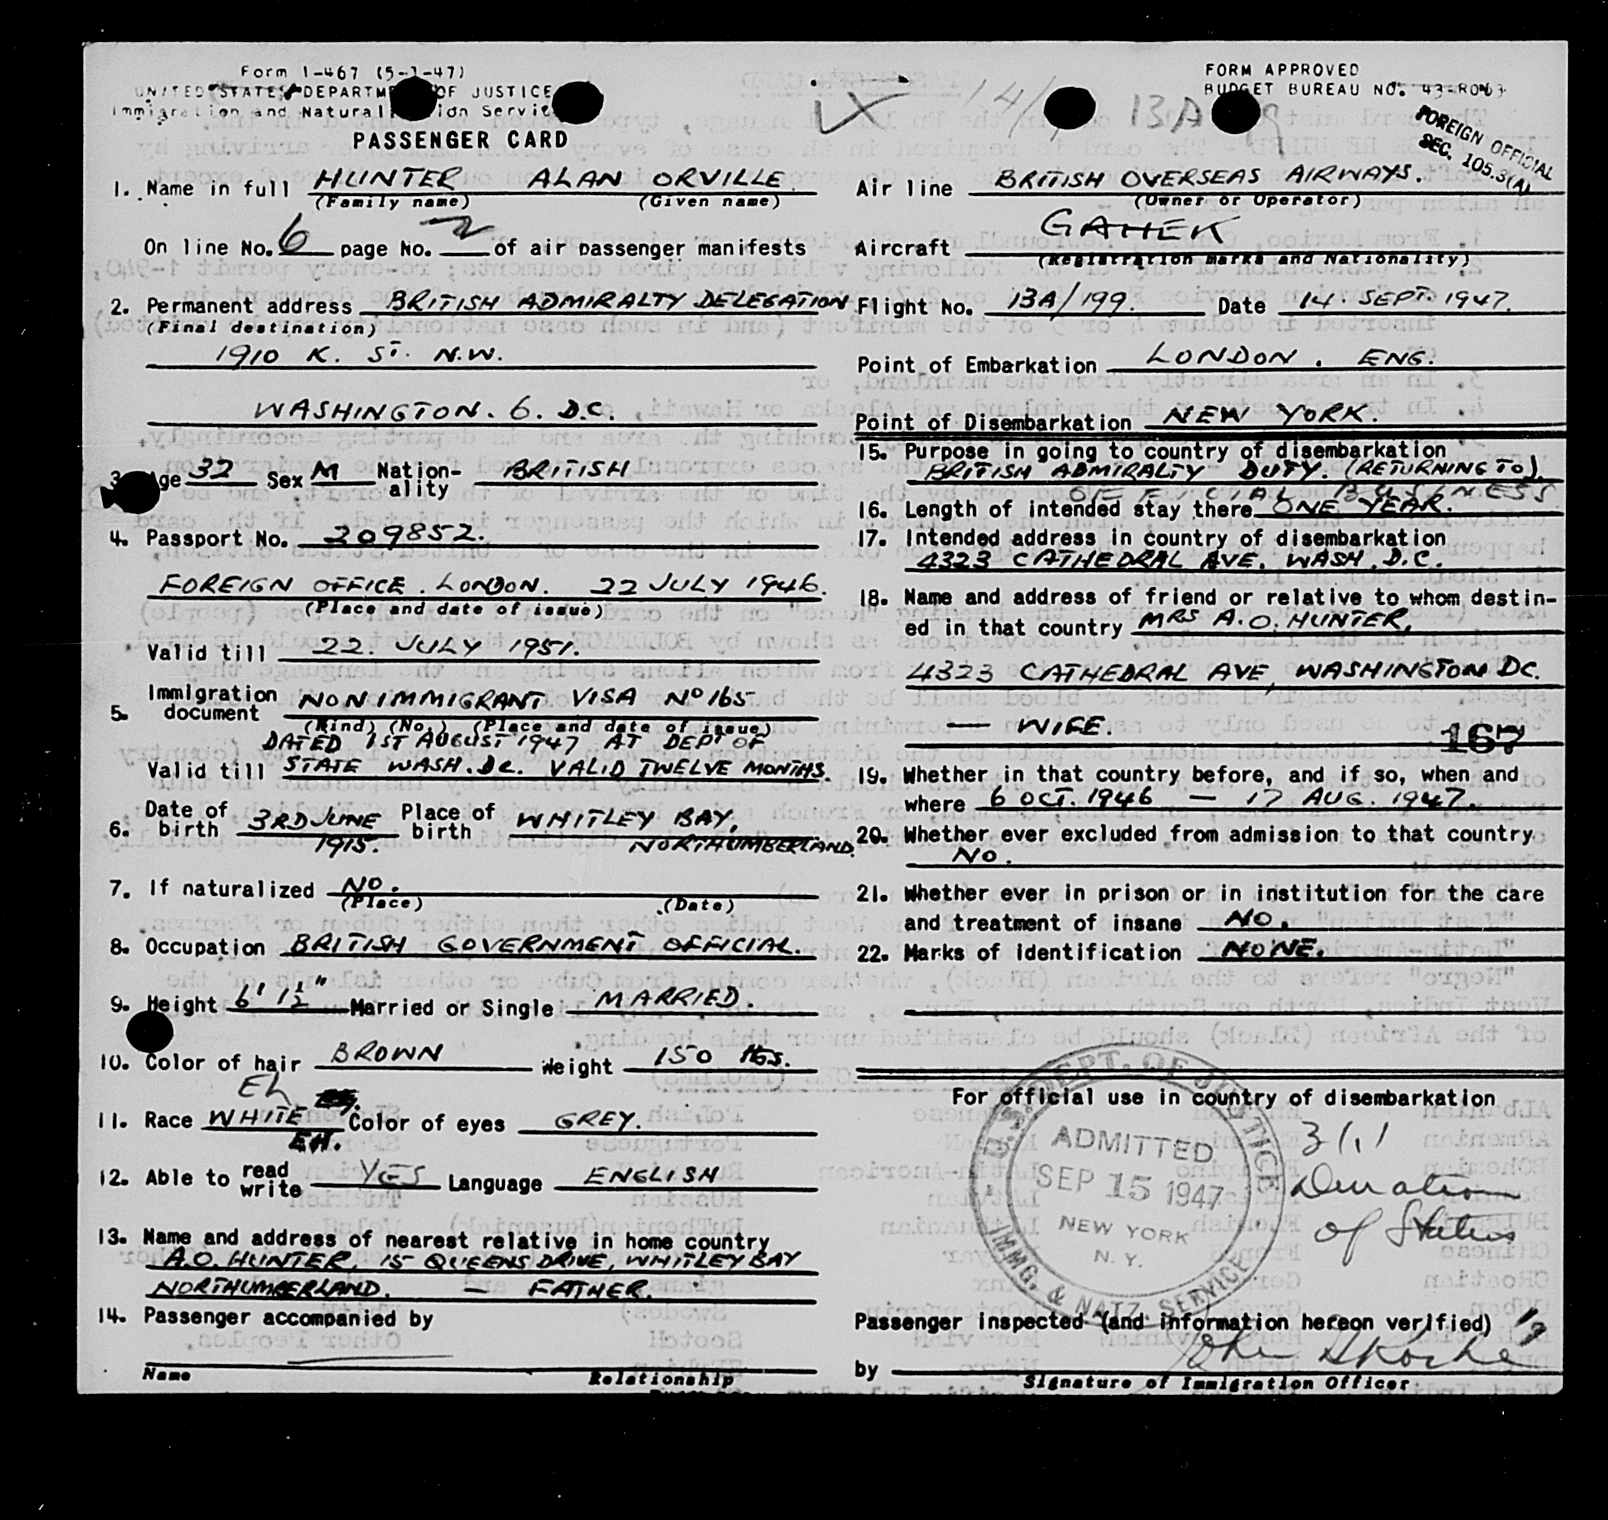 Form I-467 (5-1-47)
UNITED STATES DEPARTM OF JUSTICE
Immigration and Natural Servi
PASSENGER CARD
1. Name in full HUNTER ALAN ORVILLE
(Family name) (Given name)
On line No. 6 page No. 2 of air passenger manifests
2. Permanent address BRITISH ADMIRALTY DELEGATION
(Final destination)
1910 K. ST. N.W.
WASHINGTON. 6. D.C.
3. Age 32 Sex M Nation-ality BRITISH
4. Passport No. 209852.
FOREIGN OFFICE. LONDON. 22 JULY 1946.
(Place and date of issue)
Valid till 22. JULY 1951.
5. Immigration document NONIMMIGRANT VISA No 165
(Kind) (No.) (Place and date of issue)
DATED 1ST AUGUST 1947 AT DEPT OF
Valid till STATE WASH. DC. VALID TWELVE MONTHS.
6. Date of birth 3RD JUNE 1915. Place of birth WHITLEY BAY, NORTHUMBERLAND.
7. If naturalized NO.
(Place) (Date)
8. Occupation BRITISH GOVERNMENT OFFICIAL.
9. Height 6' 1½" Married or Single MARRIED.
10. Color of hair BROWN Weight 150 lbs.
Eh
11. Race WHITE Color of eyes GREY.
EH.
12. Able to read write YES Language ENGLISH
13. Name and address of nearest relative in home country
A.O. HUNTER, 15 QUEENS DRIVE, WHITLEY BAY
NORTHUMBERLAND. — FATHER.
14. Passenger accompanied by
Name Relationship
FORM APPROVED
BUDGET BUREAU NO. 43-R063
FOREIGN OFFICIAL
SEC. 105.3(A)
13A
Air line BRITISH OVERSEAS AIRWAYS.
(Owner or Operator)
Aircraft GAHEK
(Registration marks and Nationality)
Flight No. 13A/199. Date 14. SEPT. 1947.
Point of Embarkation LONDON. ENG.
Point of Disembarkation NEW YORK.
15. Purpose in going to country of disembarkation
BRITISH ADMIRALTY DUTY. (RETURNING TO).
OFFICIAL BUSINESS
16. Length of intended stay there ONE YEAR.
17. Intended address in country of disembarkation
4323 CATHEDRAL AVE. WASH. D.C.
18. Name and address of friend or relative to whom destin-
ed in that country MRS A.O. HUNTER,
4323 CATHEDRAL AVE, WASHINGTON DC.
— WIFE.
167
19. Whether in that country before, and if so, when and
where 6 OCT. 1946 — 17 AUG. 1947.
20. Whether ever excluded from admission to that country
NO.
21. Whether ever in prison or in institution for the care
and treatment of insane NO.
22. Marks of identification NONE.
For official use in country of disembarkation
U.S. DEPT. OF JUSTICE
ADMITTED
SEP 15 1947
NEW YORK
N. Y.
IMMG. & NATZ. SERVICE
3(1)
Duration
of Status
Passenger inspected (and information hereon verified)
by
Signature of Immigration Officer